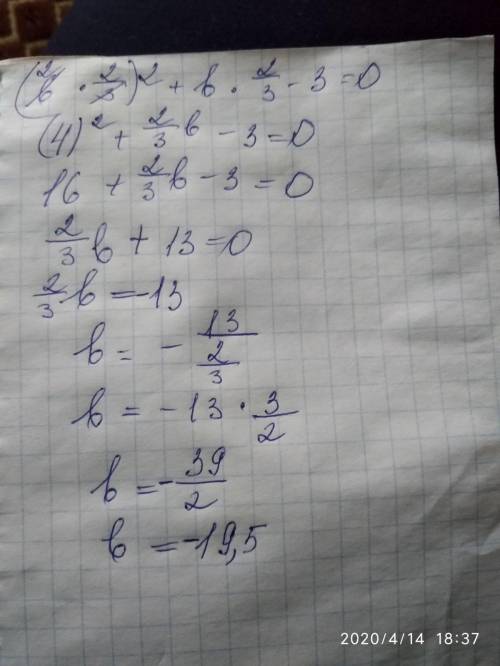 (6 · 2/3)² + b · 2/3 - 3 = 0
(4)² + 2/3 b - 3 = 0
16 + 2/3 b - 3 = 0
2/3 b + 13 = 0
2/3 b = -13
b = - 13/(2/3)
b = -13 · 3/2
b = - 39/2
b = -19,5
2020/4/14 18:37